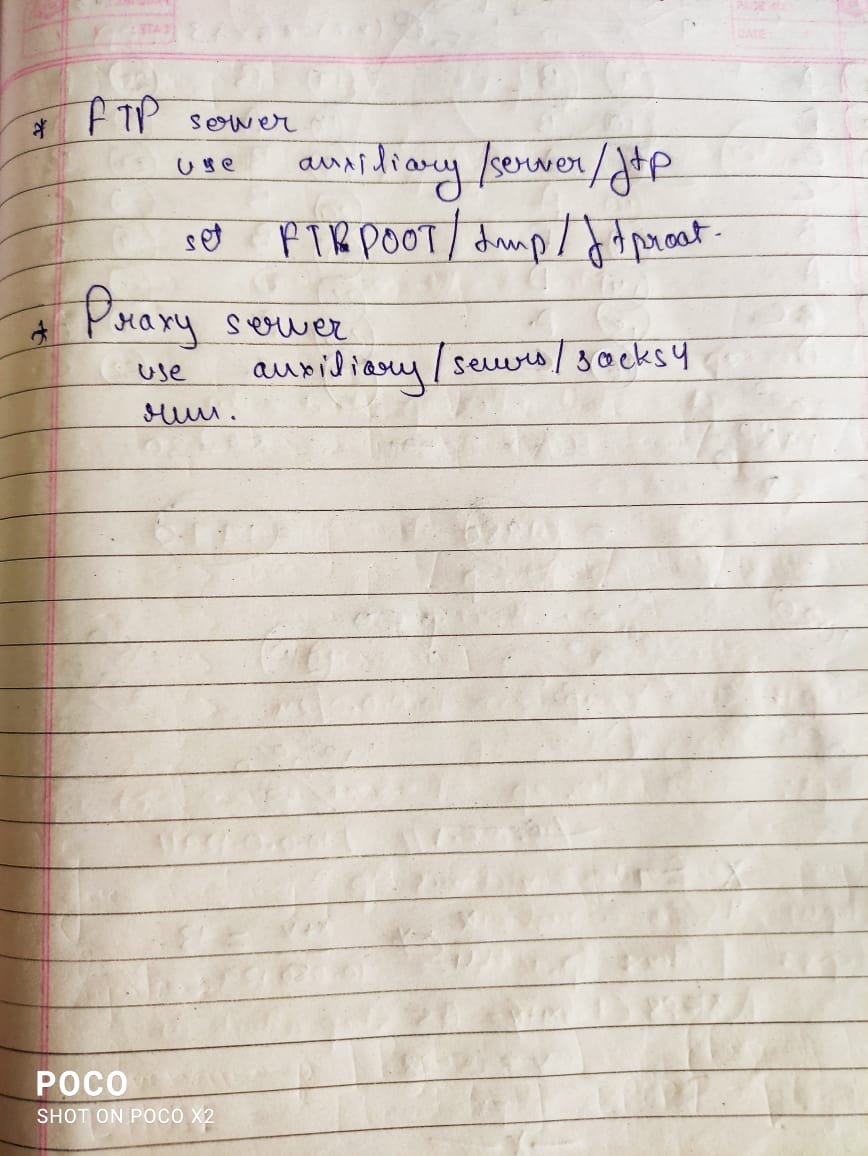 * FTP server
use auxiliary/server/ftp
set FTPROOT/tmp/ftproot.
* Proxy server
use auxiliary/server/socks4
run.
POCO
SHOT ON POCO X2